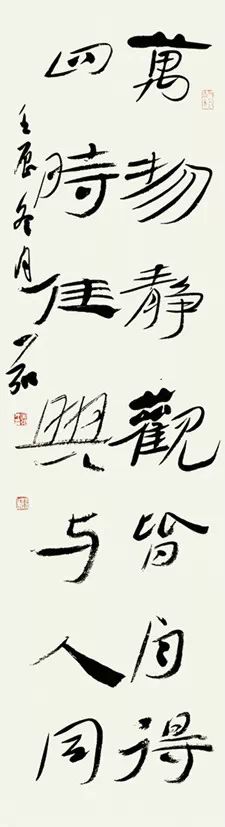 萬物静觀皆自得
四時佳興与人同
壬辰冬月